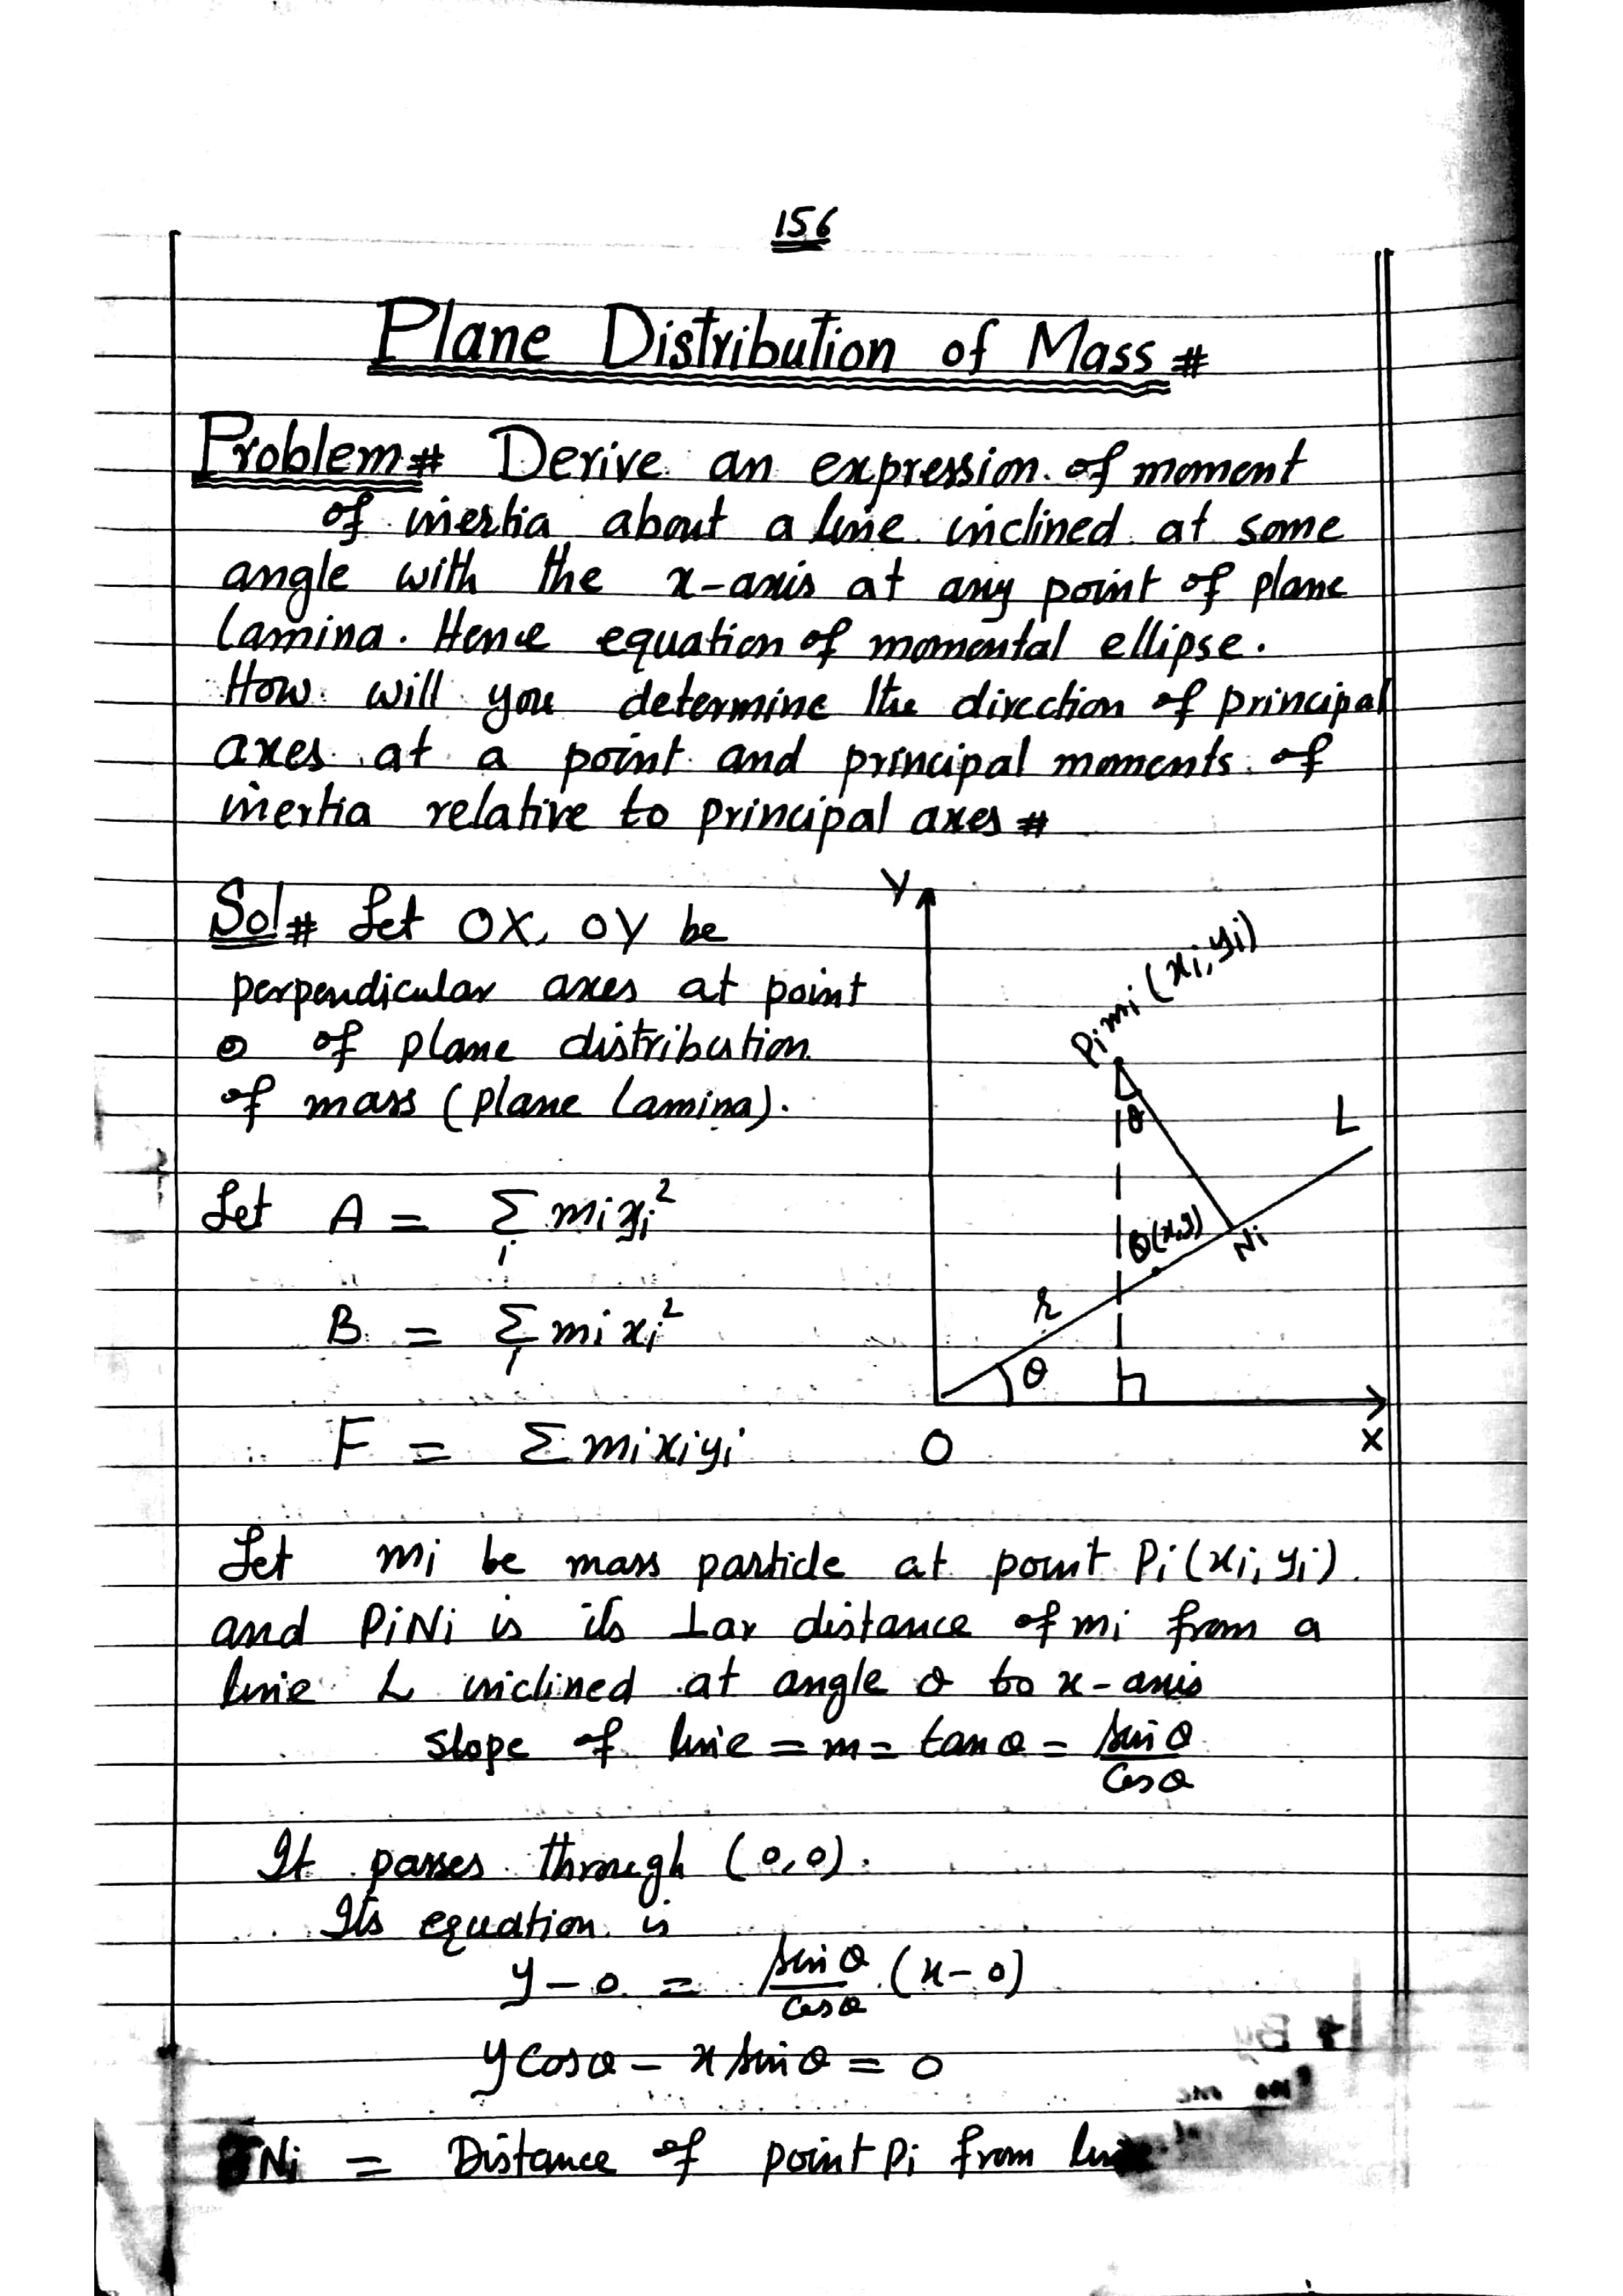 156
Plane Distribution of Mass #
Problem # Derive an expression of moment
of inertia about a line inclined at some
angle with the x-axis at any point of plane
Lamina. Hence equation of momental ellipse.
How will you determine the direction of principal
axes at a point and principal moments of
inertia relative to principal axes #
Sol # Let OX, OY be
perpendicular axes at point
O of plane distribution
of mass (plane Lamina).
Let A = Σ mi yi²
i
B = Σ mi xi²
i
F = Σ mi xi yi
Y
Pi mi (xi, yi)
θ
L
Q(x,y)
Ni
r
θ
O
X
Let mi be mass particle at point Pi (xi, yi).
and PiNi is its ⊥ar distance of mi from a
line L inclined at angle θ to x-axis
slope of line = m = tan θ = sin θ / Cos θ
It passes through (0,0).
Its equation is
y - 0 = sin θ / Cos θ (x - 0)
y Cos θ - x sin θ = 0
Ni = Distance of point Pi from line